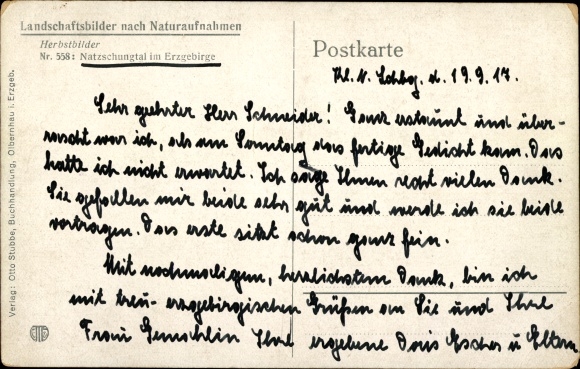 Landschaftsbilder nach Naturaufnahmen
Herbstbilder
Nr. 558: Natzschungtal im Erzgebirge
Postkarte
d. 19.9.17.
Sehr geehrter Herr Schneider! Ganz erstaunt und über-
rascht war ich, als am Sonntag das fertige Gedicht kam. Das
hatte ich nicht erwartet. Ich sage Ihnen recht vielen Dank.
Sie gefallen mir beide sehr gut und werde ich sie beide
vortragen. Das erste sitzt schon ganz fein.
Mit nochmaligem, herzlichstem Dank, bin ich
mit treu-erzgebirgischen Grüßen an Sie und Ihre
Frau Gemahlin Ihre ergebene Doris u Eltern
Verlag: Otto Stubbe, Buchhandlung, Olbernhau i. Erzgeb.